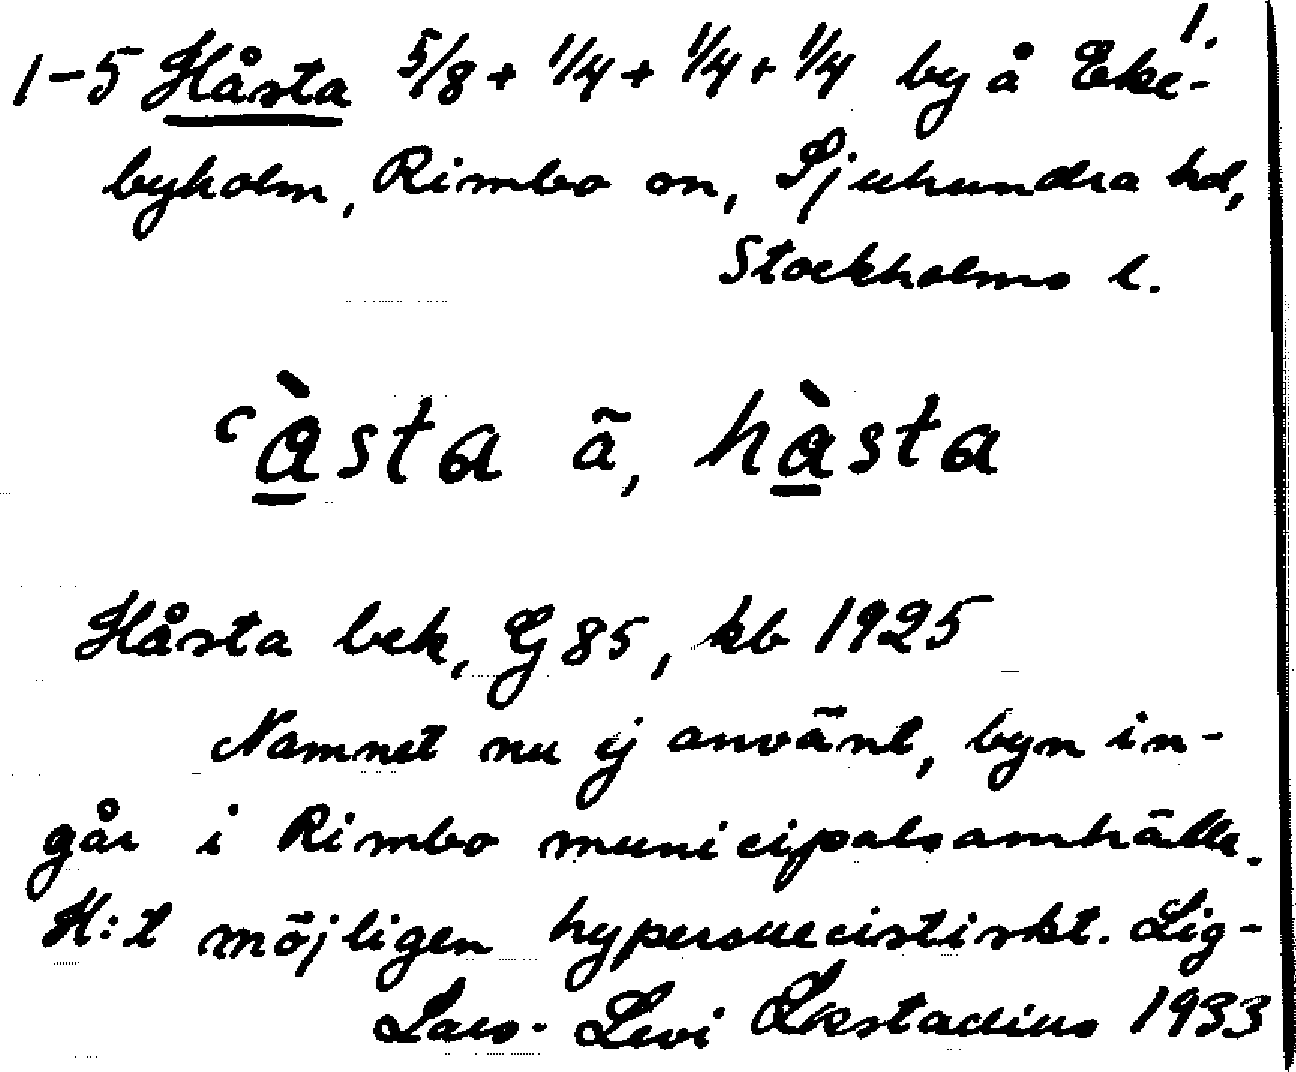 1.
1-5 Håsta 5/8 + 1/4 + 1/4 + 1/4 by å Eke-
byholm, Rimbo sn, Sjuhundra hd,
Stockholms l.
ʿàsta ã, hàsta
Håsta bek, GJ 85, kb 1925
Namnet nu ej använt, byn in-
går i Rimbo municipalsamhälle.
H:t möjligen hypersuecistiskt. Lig-
Lars-Levi Læstadius 1933